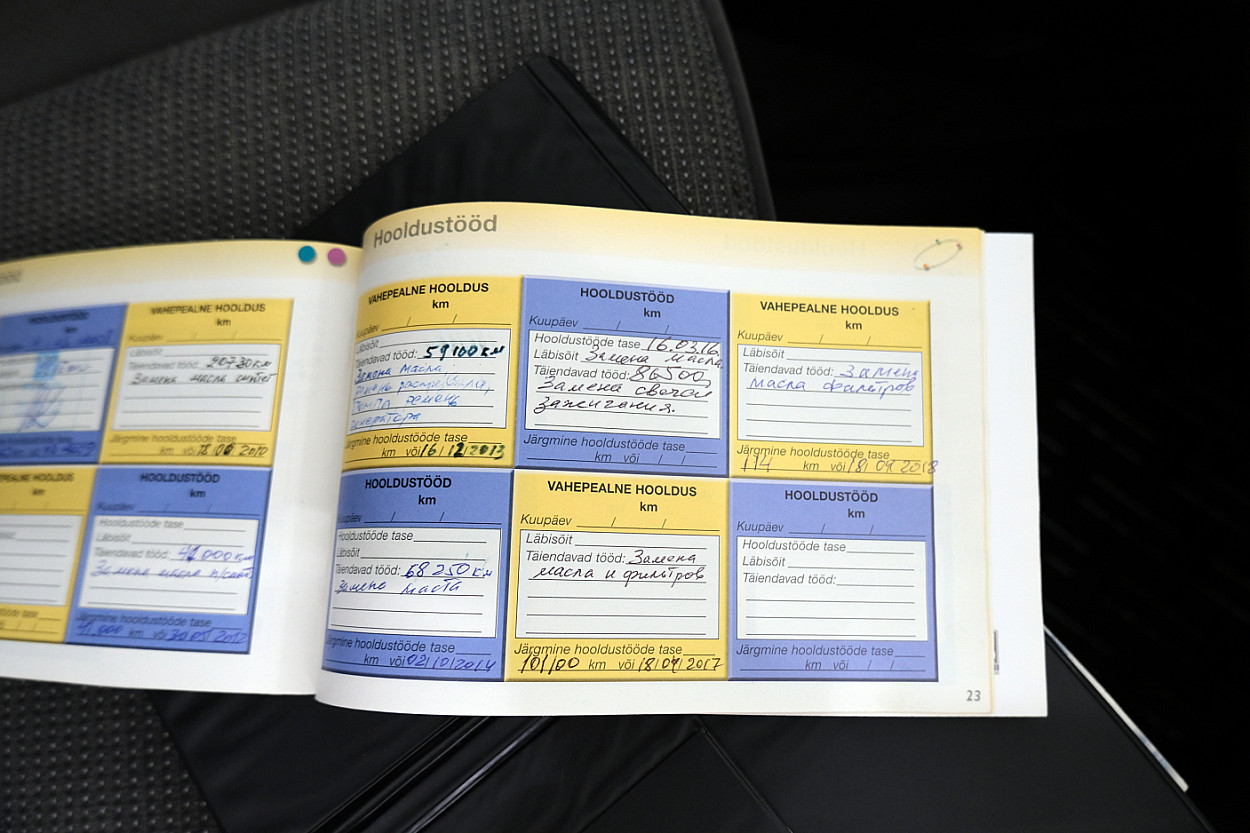 HOOLDUSTÖÖD
km
VAHEPEALNE HOOLDUS
km
Kuupäev / /
Läbisõit
Täiendavad tööd: 20730 км
Замена масла
Järgmine hooldustööde tase
km või 18 2010
HOOLDUSTÖÖD
km
Kuupäev / /
Hooldustööde tase
Läbisõit
Täiendavad tööd: 41000 км
Замена масла
Järgmine hooldustööde tase
km või
Hooldustööd
VAHEPEALNE HOOLDUS
km
Kuupäev / /
Läbisõit
Täiendavad tööd: 59100 км
Замена масла,
ремень
генератора
Järgmine hooldustööde tase
km või 16/12/2013
HOOLDUSTÖÖD
km
Kuupäev / /
Hooldustööde tase 16.03.16.
Läbisõit Замена масла.
Täiendavad tööd: 86500,
Замена свечей
зажигания.
Järgmine hooldustööde tase
km või / /
VAHEPEALNE HOOLDUS
km
Kuupäev / /
Läbisõit
Täiendavad tööd: Замена
масла фильтров
Järgmine hooldustööde tase
114 km või 18 09 2018
HOOLDUSTÖÖD
km
Kuupäev / /
Hooldustööde tase
Läbisõit
Täiendavad tööd: 68250 км
Замена масла
Järgmine hooldustööde tase
km või 02/10/2014
VAHEPEALNE HOOLDUS
km
Kuupäev / /
Läbisõit
Täiendavad tööd: Замена
масла и фильтров
Järgmine hooldustööde tase
101100 km või 18 09 2017
HOOLDUSTÖÖD
km
Kuupäev / /
Hooldustööde tase
Läbisõit
Täiendavad tööd:
Järgmine hooldustööde tase
km või / /
23